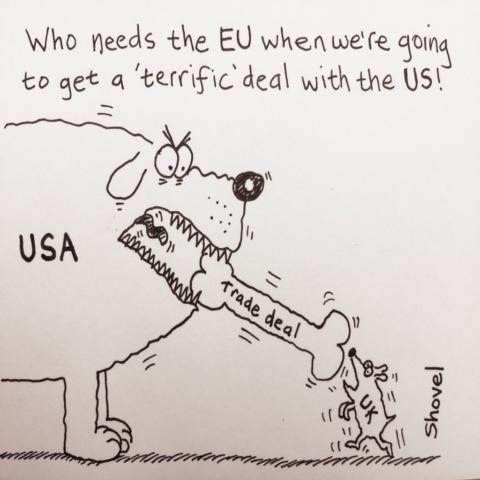 Who needs the EU when we're going
to get a 'terrific' deal with the US!
USA
Trade deal
UK
Shovel